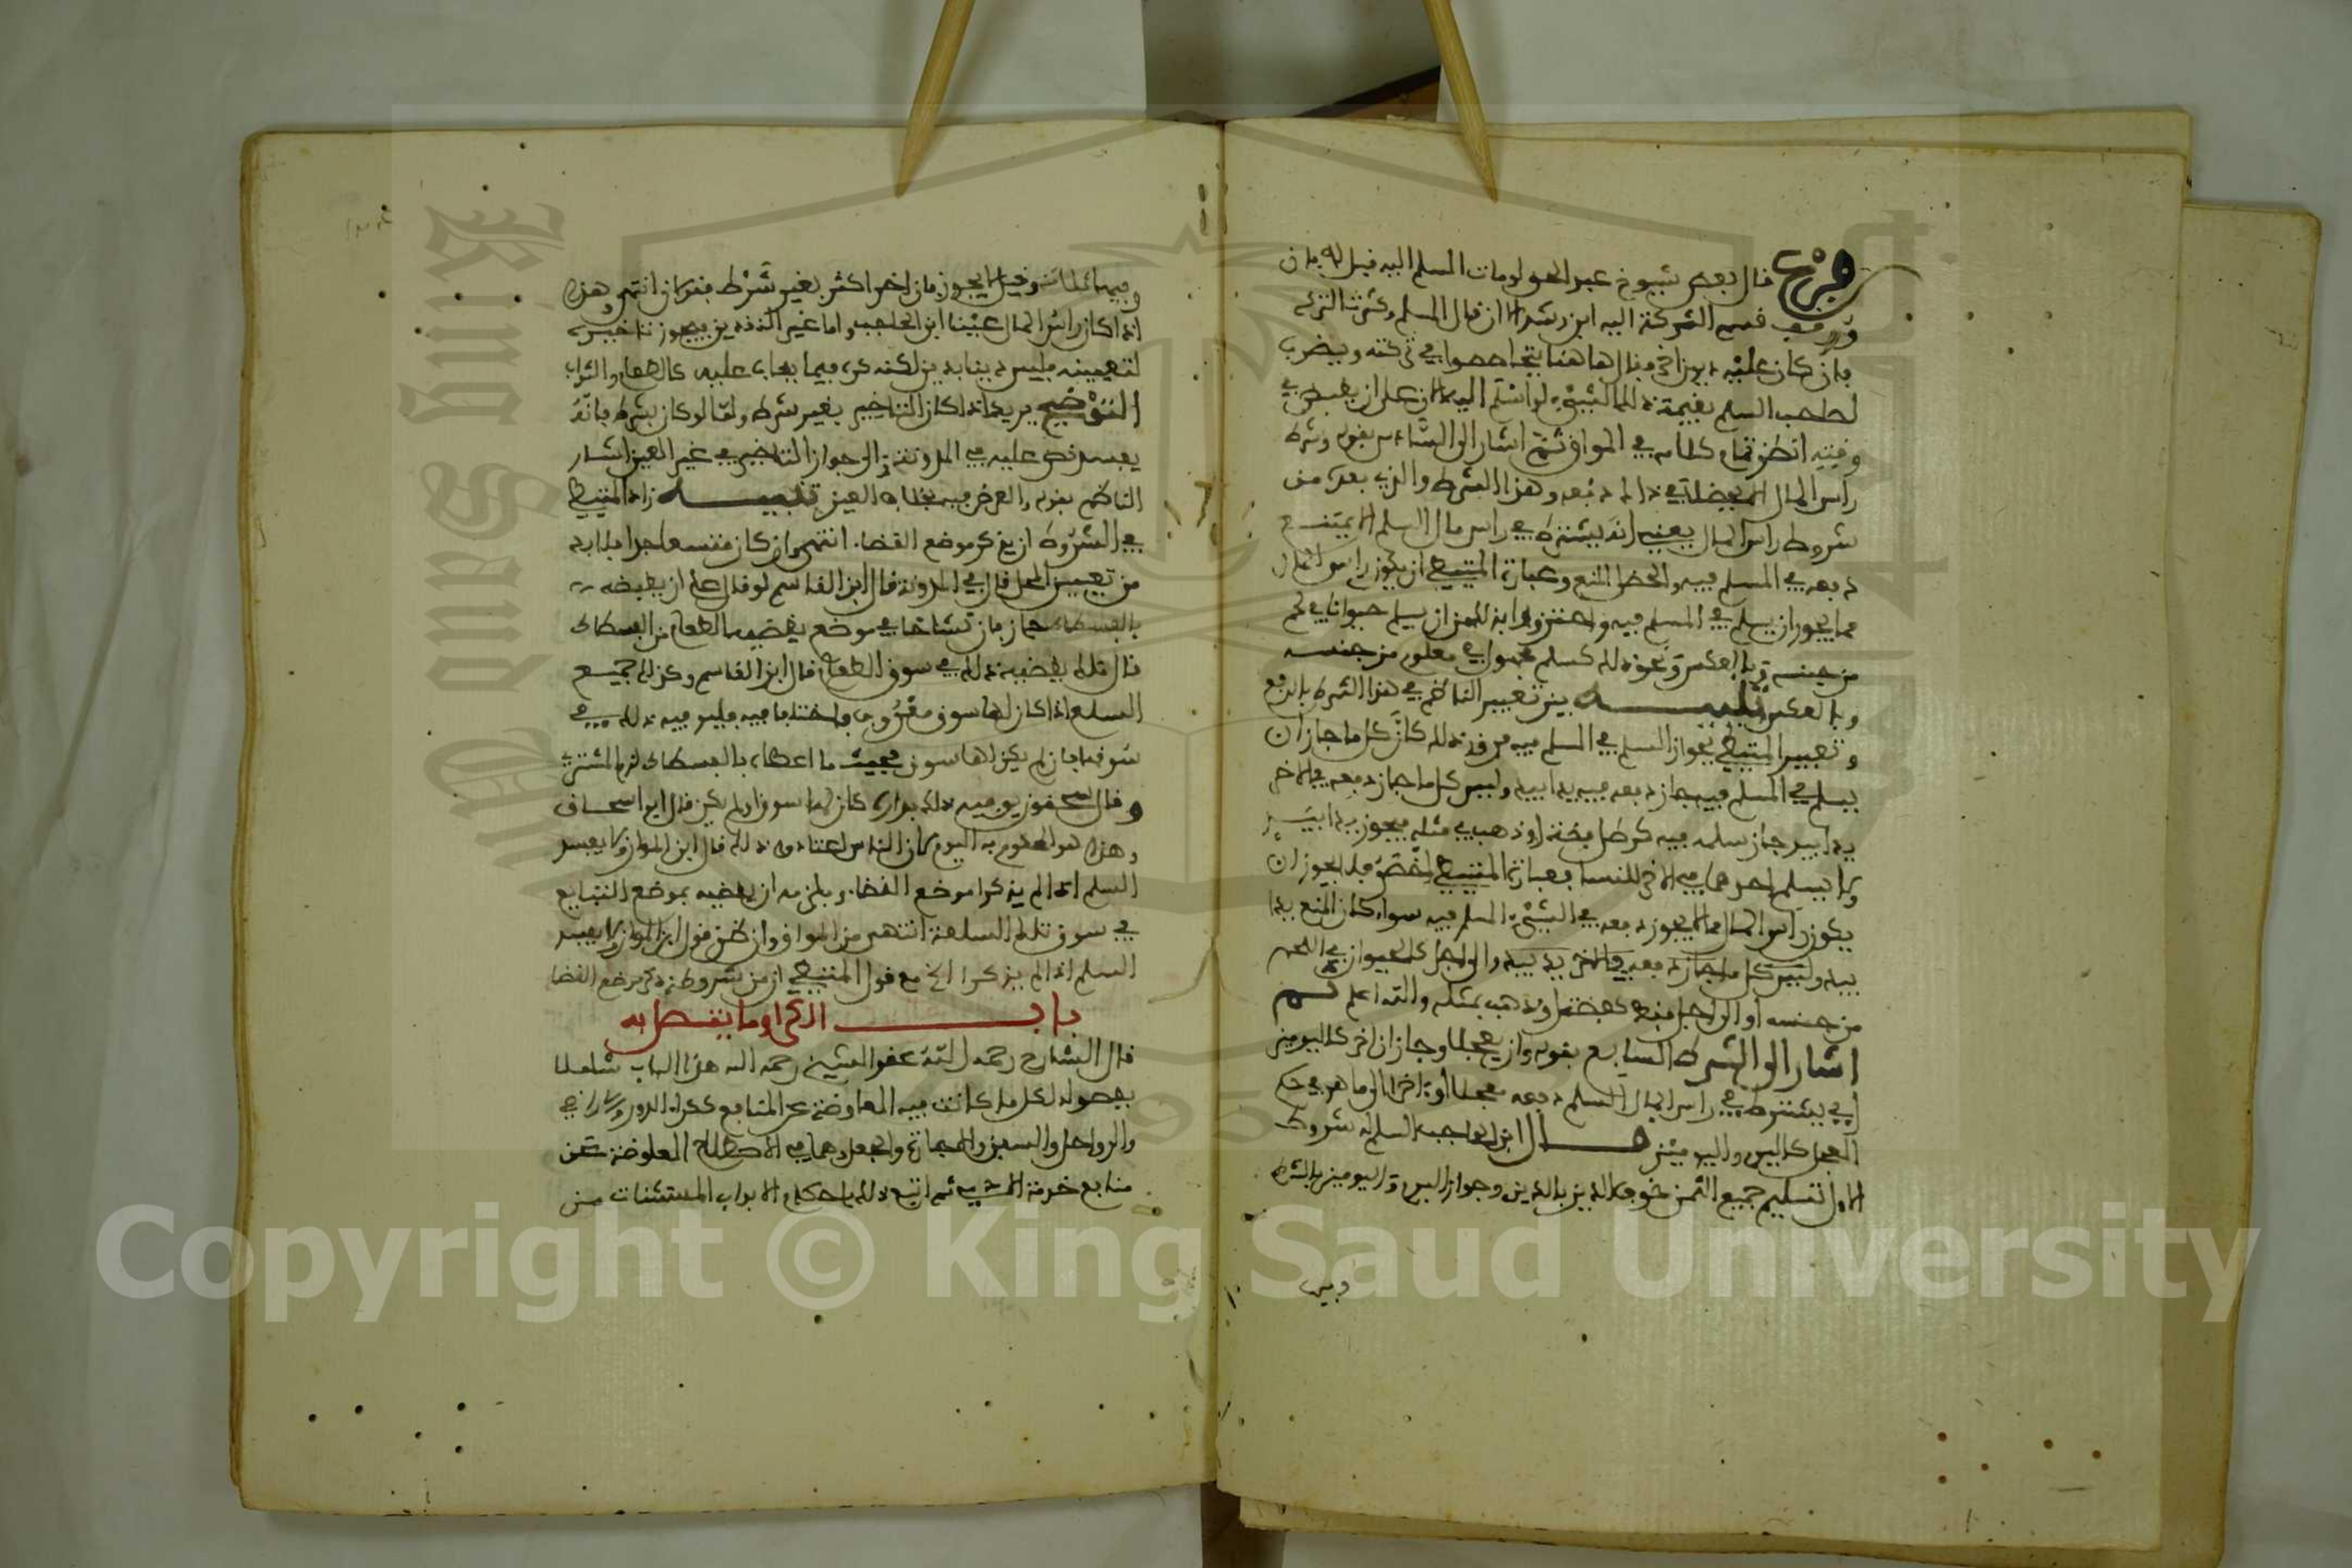 فرع قال بعض شيوخ عبد الحق لو مات المسلم اليه قبل
ووقف قسم التركة اليه ابن رشد الا ان قال المسلم
فان كان عليه ديون اخرى فقال هاهنا يتحاصصوا في تركته ويضرب
لصاحب السلم بقيمة ذلك الشيء الذي اسلم اليه الان على ان يقبض في
وقته انظر تمام كلامه في المواق ثم اشار الى الشرط بقوله وشرط
راس المال ان لا يحظلا في ذاك دفعه وهذا الشرط والذي بعده من
شروط راس المال يعني انه يشترط في راس مال السلم ان لا يمتنع
دفعه في المسلم فيه والحظل المنع وعبارة المتيطي ان يكون راس المال
مما يجوز ان يسلم في المسلم فيه واحترز بذلك من ان يسلم حيوانا في لحم
من جنسه وبالعكس ونحو ذلك كسلم مجهول في معلوم من جنسه
وبالعكس تنبيه بين تعبير الناظم في هذا الشرط بالدفع
وتعبير المتيطي بجواز السلم في المسلم فيه فرق وذلك كان كل ما جاز ان
يسلم في المسلم فيه جاز دفعه فيه يدا بيد وليس كل ما جاز دفعه في الاخر
يدا بيد جاز سلمه فيه كرطل فضة او ذهب في مثله فيجوز يدا بيد
ولا يسلم احدهما في الاخر للنسا فعبارة المتيطي اخص فلا يجوز ان
يكون راس المال مما لا يجوز دفعه في الشيء المسلم فيه سواء كان المنع يدا
بيد وليس كل ما جاز دفعه في الاخر يدا بيد والى اجل كالحيوان في اللحم
من جنسه او الى اجل فقط كفضة او ذهب بمثله والله اعلم ثم
اشار الى الشرط السابع بقوله وان يعجلا وجاز ان اخر كاليومين
اي يشترط في راس المال السلم دفعه معجلا او مؤخرا الى ما هو في حكم
العجل كاليوم واليومين قال ابن الحاجب السلم له شروط
الاول تسليم جميع الثمن خوف الدين بالدين وجواز اليوم واليومين بالشرط
وفيهما
وفيهما ثلاثة وقيل لا يجوز فان اخر اكثر بغير شرط فقولان انتهى وهذا
اذا كان راس المال عينا ابن الحاجب واما غير النقدين فيجوز تاخيره
لتعيينه فليس دينا بدين لكنه كره فيما يغاب عليه كالطعام والثياب
التوضيح يريد اذا كان التاخير بغير شرط واما لو كان بشرط فانه
يفسد نص عليه في المدونة والى جواز التاخير في غير العين اشار
الناظم بقوله والعرض فيه بخلاف العين تنبيه زاد المتيطي
في الشروط ان يذكر موضع القضا انتهى وان كان متسعا جدا فلا بد
من تعيين المحل قال في المدونة قال ابن القاسم لو قال على ان يقبضه
بالفسطاط جاز فان تشاحا في موضع يقضيه الطعام من الفسطاط
قال مالك يقضيه ذلك في سوق الطعام قال ابن القاسم وكذلك جميع
السلع اذا كان لها سوق معروف فاختلفا فيه فليوفيه ذلك في
سوقها فان لم يكن لها سوق فحيث ما اعطاه بالفسطاط لزم المشتري
وقال سحنون يوفيه ذلك بداره كان لها سوق او لم يكن قال ابو اسحاق
وهذا هو المحكوم به اليوم لان الناس اعتادوه ذلك قال ابن المواز ولا يفسد
السلم اذا لم يذكرا موضع القضا ويلزمه ان يقضيه بموضع التبايع
في سوق تلك السلعة انتهى من المواق وانظر قول ابن المواز ولا يفسد
السلم اذا لم يذكرا الخ مع قول المتيطي ان من شروطه ذكر موضع القضا
باب الكرا وما يتصل به
قال الشارح رحمه الله عقد الشيخ رحمه الله هذا الباب شاملا
بفصوله لكل ما كانت فيه المعاوضة عن المنافع ككراء الدور والارض
والرواحل والسفن والاجارة والجعل وهما في الاصطلاح المعاوضة عن
منافع خدمة الادمي ثم اتبع ذلك باحكام الابواب المستثنات من